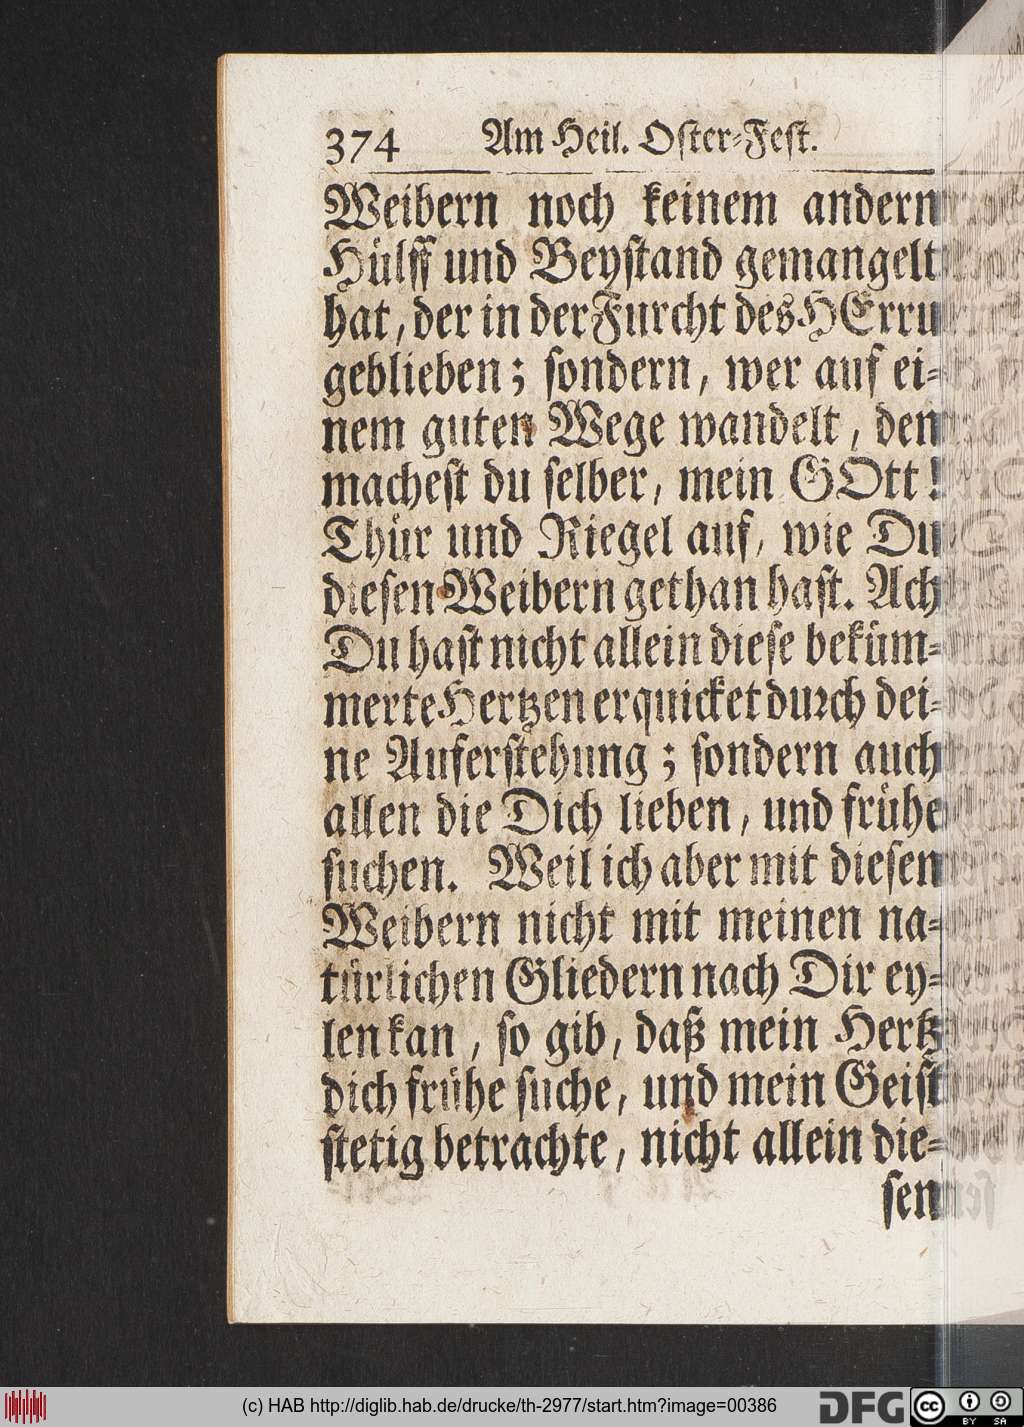 374 Am Heil. Oster-Fest.
Weibern noch keinem andern
Hülff und Beystand gemangelt
hat, der in der Furcht des HErrn
geblieben; sondern, wer auf ei-
nem guten Wege wandelt, dem
machest du selber, mein GOtt!
Thür und Riegel auf, wie Du
diesen Weibern gethan hast. Ach
Du hast nicht allein diese beküm-
merte Hertzen erquicket durch dei-
ne Auferstehung; sondern auch
allen die Dich lieben, und frühe
suchen. Weil ich aber mit diesen
Weibern nicht mit meinen na-
türlichen Gliedern nach Dir ey-
len kan, so gib, daß mein Hertz
dich frühe suche, und mein Geist
stetig betrachte, nicht allein die-
sen
(c) HAB http://diglib.hab.de/drucke/th-2977/start.htm?image=00386
DFG
cc BY SA